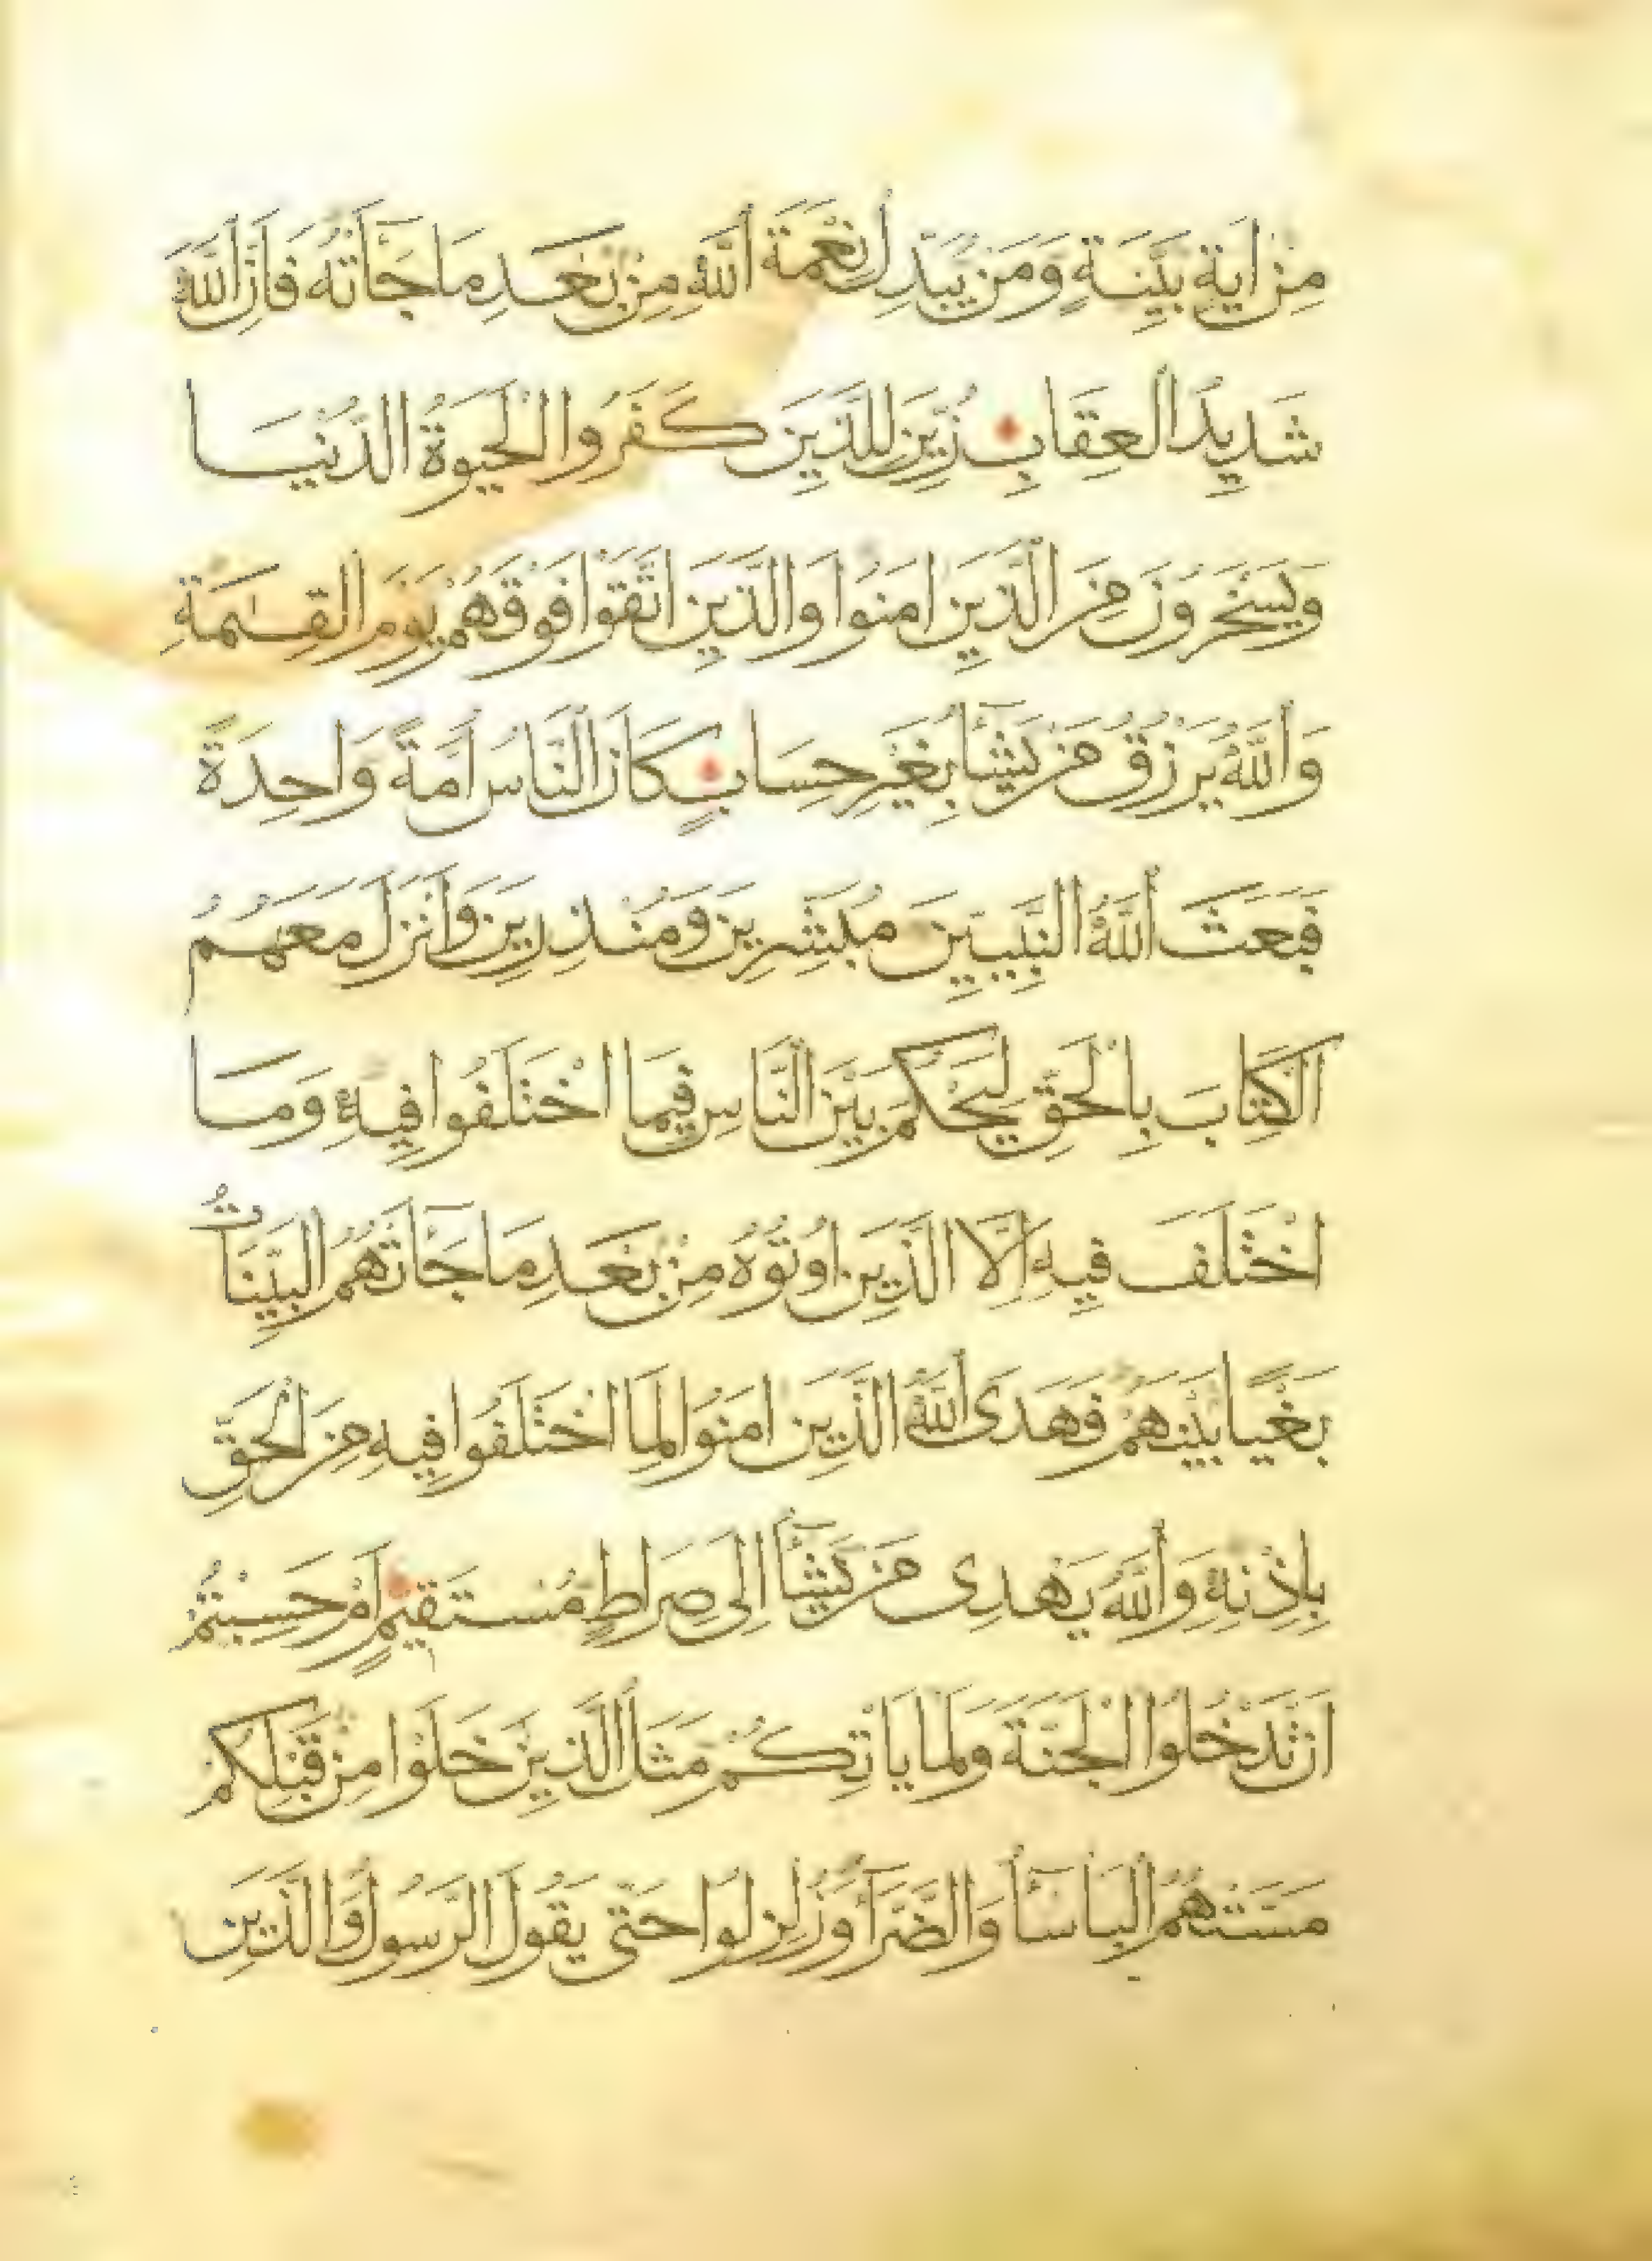 مِنْ اٰيَةٍ بَيِّنَةٍ وَمَنْ يُبَدِّلْ نِعْمَةَ اللّٰهِ مِنْ بَعْدِ مَا جَآءَتْهُ فَاِنَّ اللّٰهَ
شَدِيدُ الْعِقَابِ زُيِّنَ لِلَّذِينَ كَفَرُوا الْحَيٰوةُ الدُّنْيَا
وَيَسْخَرُونَ مِنَ الَّذِينَ اٰمَنُوا وَالَّذِينَ اتَّقَوْا فَوْقَهُمْ يَوْمَ الْقِيٰمَةِ
وَاللّٰهُ يَرْزُقُ مَنْ يَشَآءُ بِغَيْرِ حِسَابٍ كَانَ النَّاسُ اُمَّةً وَاحِدَةً
فَبَعَثَ اللّٰهُ النَّبِيِّينَ مُبَشِّرِينَ وَمُنْذِرِينَ وَاَنْزَلَ مَعَهُمُ
الْكِتَابَ بِالْحَقِّ لِيَحْكُمَ بَيْنَ النَّاسِ فِيمَا اخْتَلَفُوا فِيهِ وَمَا
اخْتَلَفَ فِيهِ اِلَّا الَّذِينَ اُوتُوهُ مِنْ بَعْدِ مَا جَآءَتْهُمُ الْبَيِّنَاتُ
بَغْيًا بَيْنَهُمْ فَهَدَى اللّٰهُ الَّذِينَ اٰمَنُوا لِمَا اخْتَلَفُوا فِيهِ مِنَ الْحَقِّ
بِاِذْنِهِ وَاللّٰهُ يَهْدِى مَنْ يَشَآءُ اِلٰى صِرَاطٍ مُسْتَقِيمٍ اَمْ حَسِبْتُمْ
اَنْ تَدْخُلُوا الْجَنَّةَ وَلَمَّا يَاْتِكُمْ مَثَلُ الَّذِينَ خَلَوْا مِنْ قَبْلِكُمْ
مَسَّتْهُمُ الْبَاْسَآءُ وَالضَّرَّآءُ وَزُلْزِلُوا حَتّٰى يَقُولَ الرَّسُولُ وَالَّذِينَ